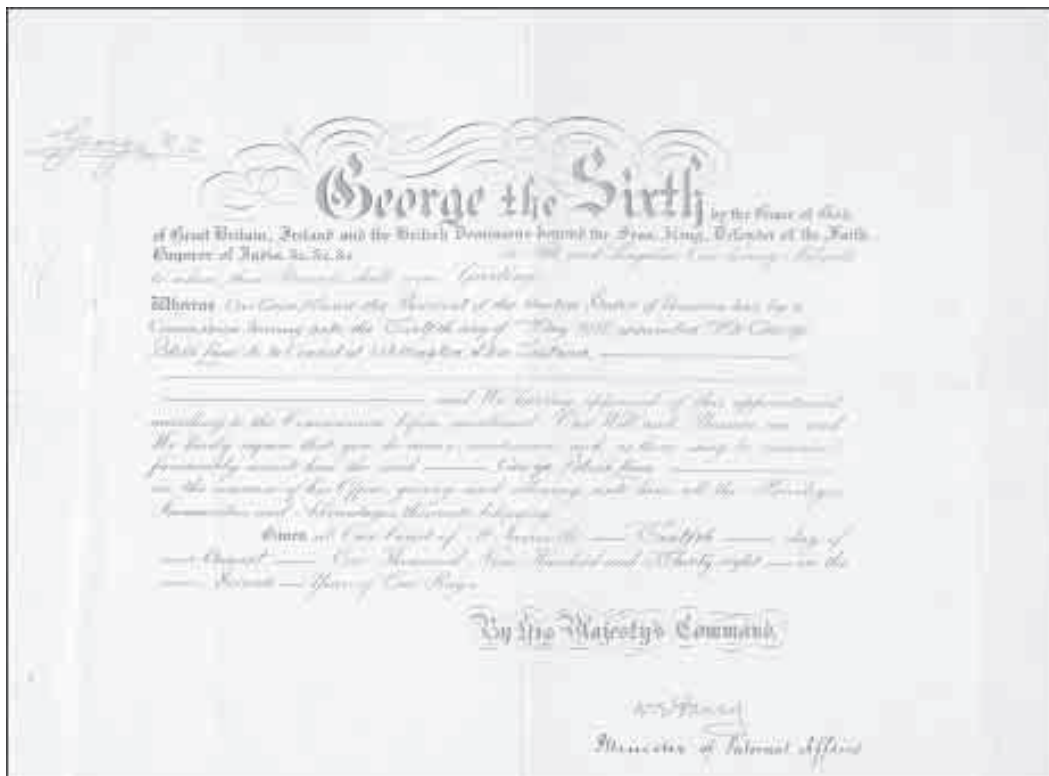 George R.I.
George the Sixth by the Grace of God,
of Great Britain, Ireland and the British Dominions beyond the Seas, King, Defender of the Faith,
Emperor of India, &c. &c. &c. To All and Singular Our Loving Subjects
to whom these Presents shall come, Greeting
Whereas Our Good Friend the President of the United States of America has by a
Commission bearing date the Twelfth day of May 1938 appointed Mr George
to be Consul at Wellington New Zealand,
and We having approved of this appointment
according to the Commission before mentioned, Our Will and Pleasure are and
We hereby require that you do receive, countenance and, as there may be occasion
favourably assist him the said George
in the exercise of his Office, giving and allowing unto him all the Privileges
Immunities and Advantages thereunto belonging
Given at Our Court of St James's the Twelfth day of
August One Thousand Nine Hundred and Thirty eight in the
Second Year of Our Reign
By His Majesty's Command,
Minister of Internal Affairs